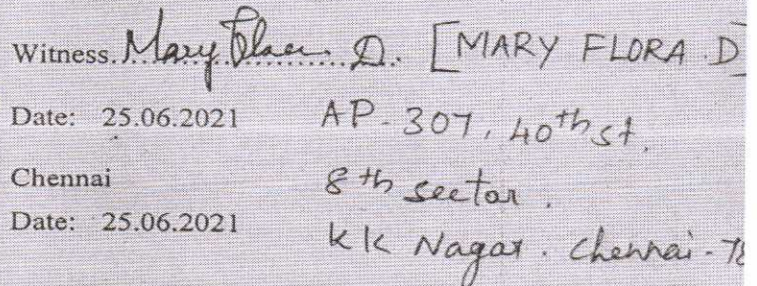 Witness. Mary Flora. D. [MARY FLORA .D]
Date: 25.06.2021 AP-307, 40th st.
Chennai 8th sector.
Date: 25.06.2021 KK Nagar. Chennai-78